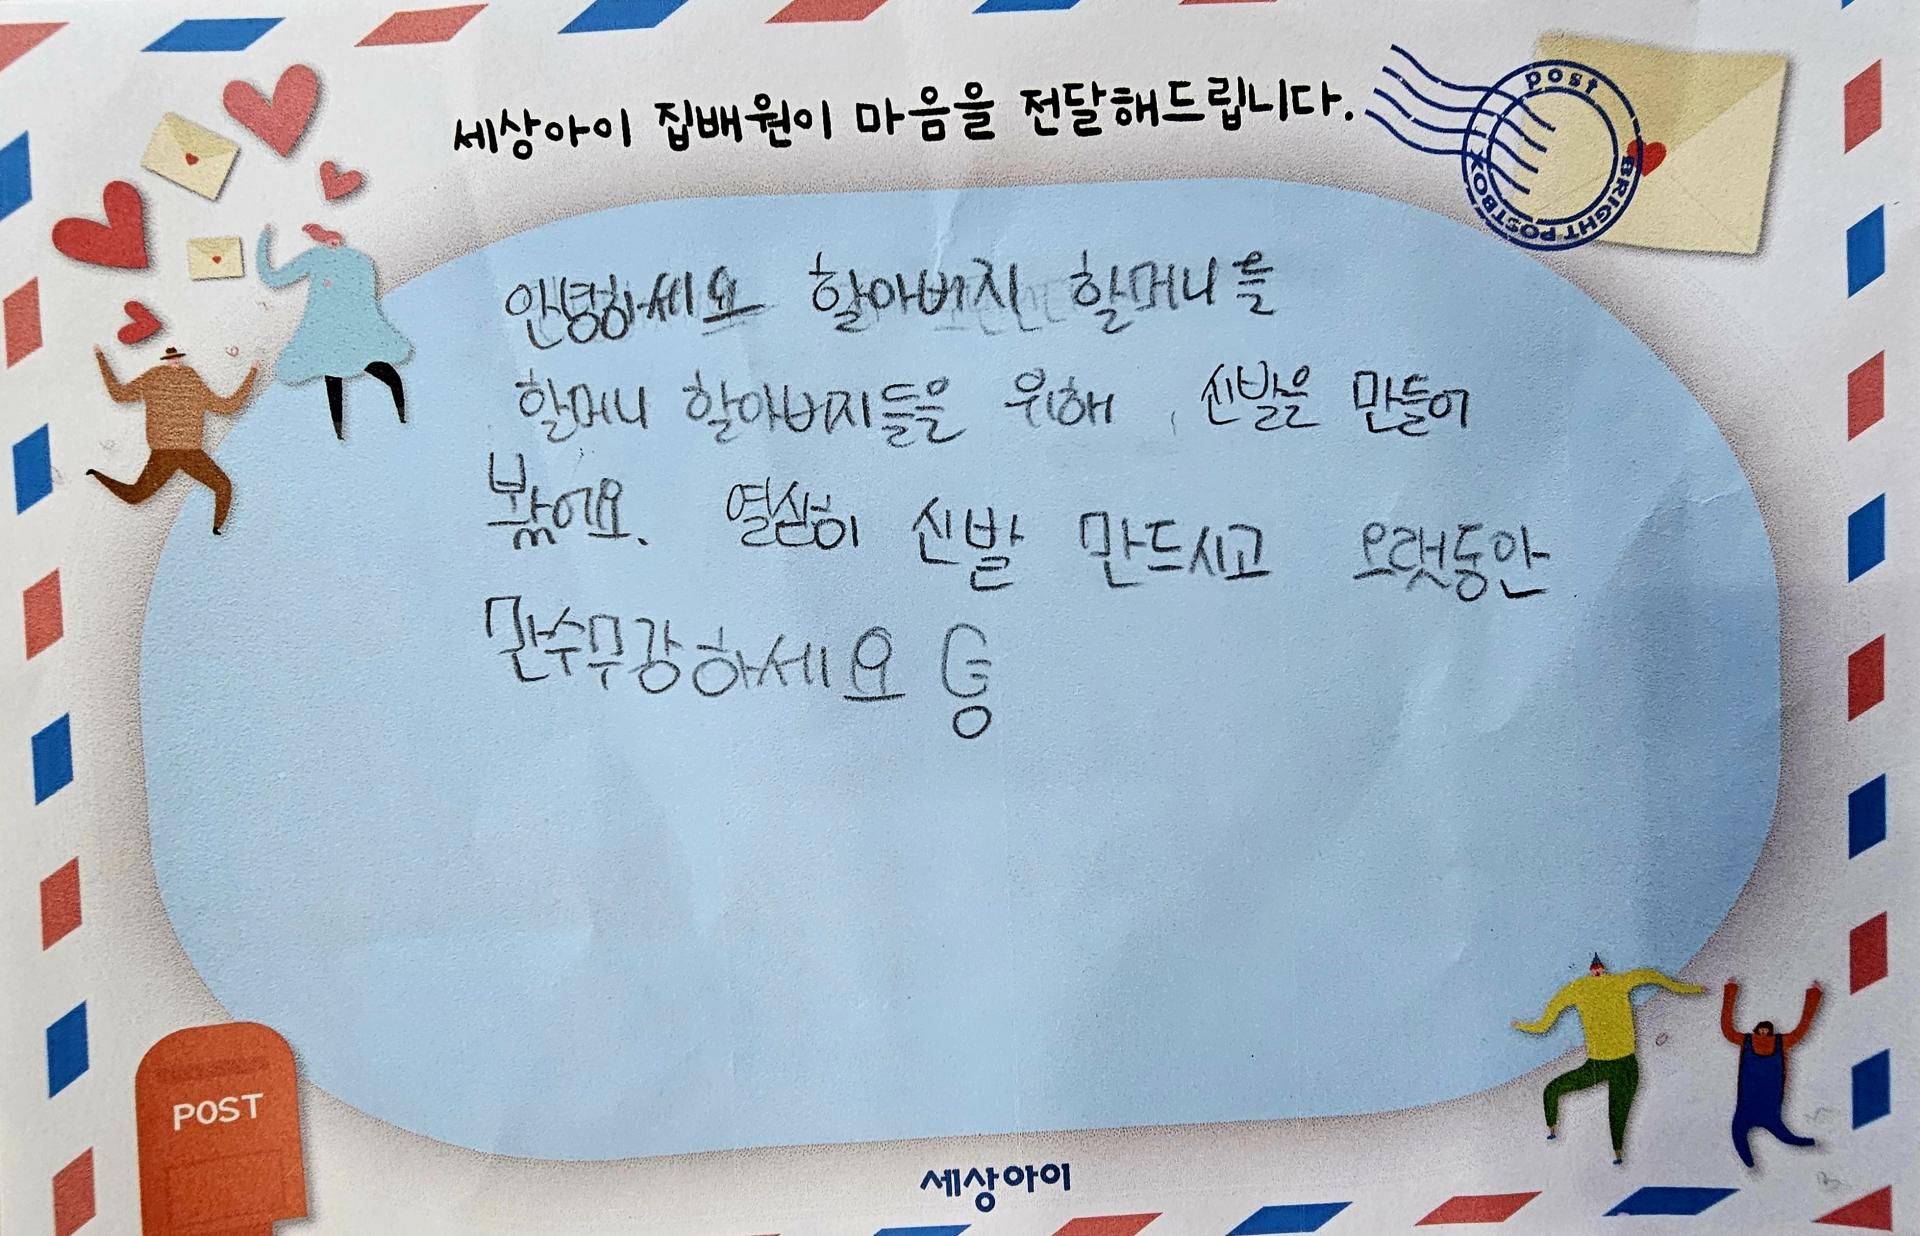 세상아이 집배원이 마음을 전달해드립니다.
post
BRIGHT POSTBOX
안녕하세요 할아버지 할머니를
할머니 할아버지들을 위해 신발을 만들어
봤어요. 열심히 신발 만드시고 오랫동안
만수무강하세요
POST
세상아이